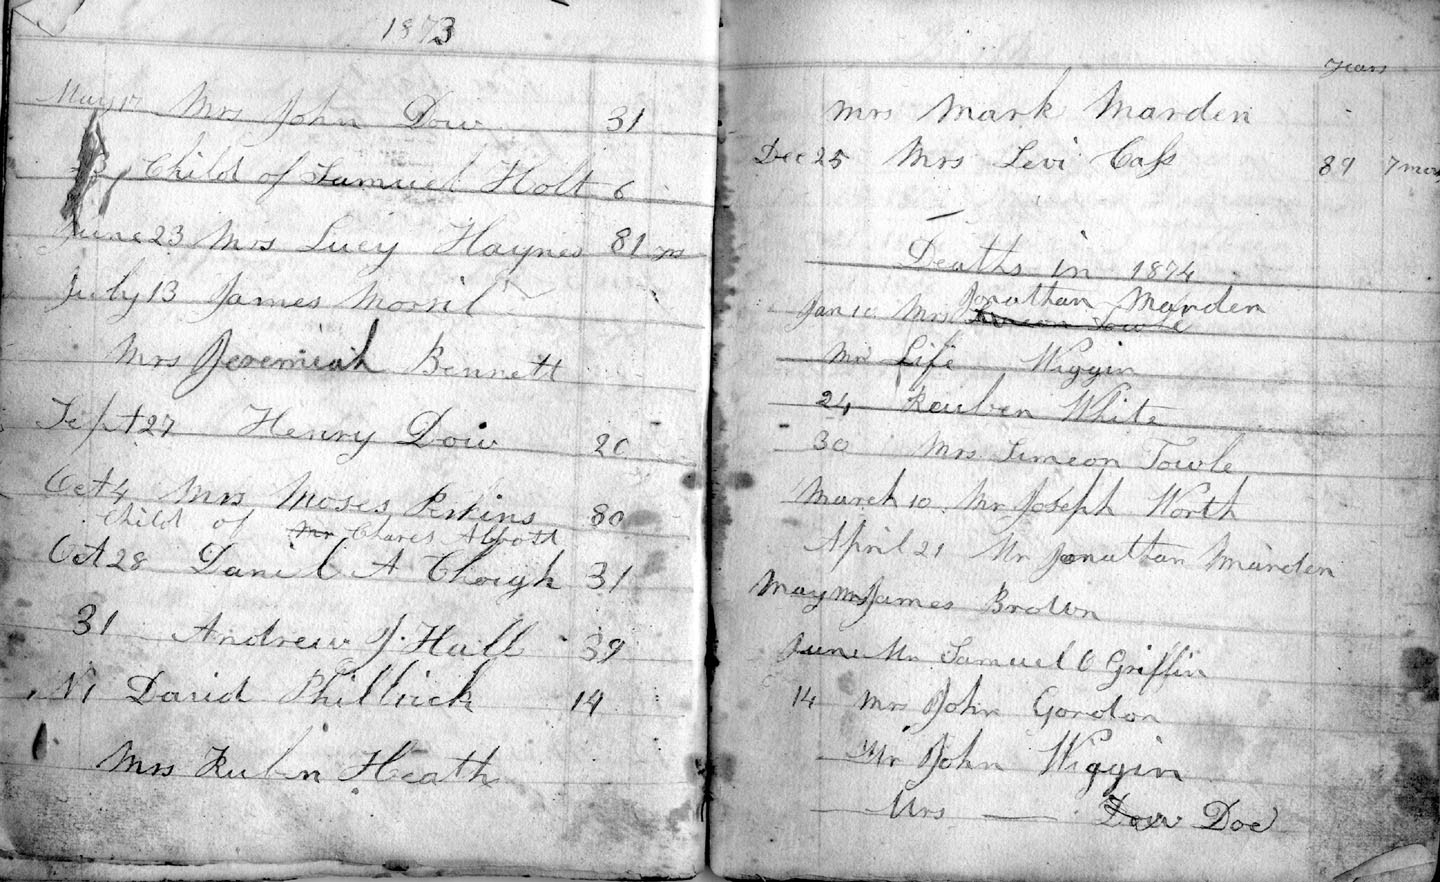 1873
May 17 Mrs John Dow 31
Child of Samuel Holt 6
June 23 Mrs Lucy Haynes 81 yrs
July 13 James Morril
Mrs Jeremiah Bennett
Sept 27 Henry Dow 20
Oct 4 Mrs Moses Perkins 80
Child of Mr Chares Abbott
Oct 28 Daniel A Clough 31
31 Andrew J. Hall 39
N 1 David Philbrick 14
Mrs Rubin Heath
years
Mrs Mark Marden
Dec 25 Mrs Levi Cass 89 7 mos
Deaths in 1874
Jonathan Marden
Jan 10 Mrs Simeon Towle
Mr Life Wiggin
24 Reuben White
30 Mrs Simeon Towle
March 10 Mr Joseph Worth
April 21 Mr Jonathan Marden
May Mrs James Brown
June Mr Samuel O Griffin
14 Mrs John Gordon
Mr John Wiggin
Mrs — Dow Doe